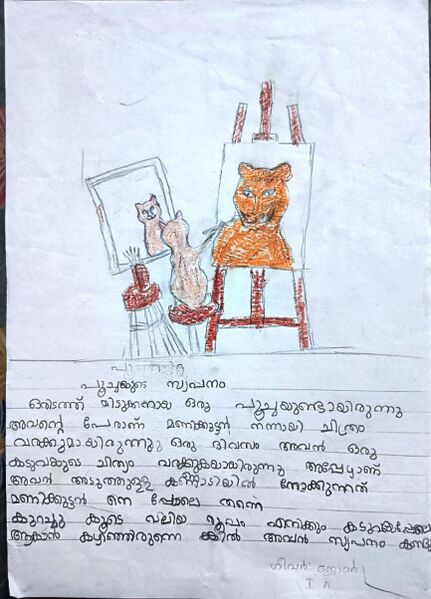 പൂച്ചയുടെ സ്വപനം
ഒരിടത്ത് മിടുക്കനായ ഒരു പൂച്ചയുണ്ടായിരുന്നു
അവന്റെ പേരാണ് മണിക്കുട്ടൻ നന്നായി ചിത്രം
വരക്കുമായിരുന്നു ഒരു ദിവസം അവൻ ഒരു
കടുവയുടെ ചിത്രം വരക്കുകയായിരുന്നു അപ്പോഴാണ്
അവൻ അടുത്തുള്ള കണ്ണാടിയിൽ നോക്കുന്നത്
മണിക്കുട്ടൻ നെ പോലെ തന്നെ
കുറച്ചു കൂടെ വലിയ രൂപം എനിക്കും കടുവയെപ്പോലെ
ആകാൻ കഴിഞ്ഞിരുന്നെ ങ്കിൽ അവൻ സ്വപനം കണ്ടു
ഗീവർ ജോൺ
I A